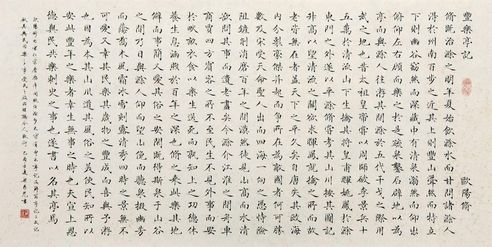 豐樂亭記 歐陽脩
脩既治滁之明年夏始飲滁水而甘問諸滁人
得於州南百步之近其上則豐山聳然而特立
下則幽谷窈然而深藏中有清泉滃然而仰出
俯仰左右顧而樂之於是疏泉鑿石闢地以為
亭而與滁人往遊其間滁於五代干戈之際用
武之地也昔太祖皇帝嘗以周師破李景兵十
五萬於清流山下生擒其將皇甫暉姚鳳於滁
東門之外遂以平滁脩嘗考其山川按其圖記
升高以望清流之關欲求暉鳳就擒之所而故
老皆無在者蓋天下之平久矣自唐失其政海
內分裂豪傑並起而爭所在為敵國者何可勝
數及宋受天命聖人出而四海一向之憑恃險
阻剗削消磨百年之間漠然徒見山高而水清
欲問其事而遺老盡矣今滁介江淮之間舟車
商賈四方賓客之所不至民生不見外事而安
於畎畝衣食以樂生送死而孰知上之功德休
養生息涵煦於百年之深也脩之來此樂其地
僻而事簡又愛其俗之安閒既得斯泉於山谷
之間乃日與滁人仰而望山俯而聽泉掇幽芳
而蔭喬木風霜冰雪刻露清秀四時之景無不
可愛又幸其民樂其歲物之豐成而喜與予遊
也因為本其山川道其風俗之美使民知所以
安此豐年之樂者幸生無事之時也夫宣上恩
德與民共樂刺史之事也遂書以名其亭焉